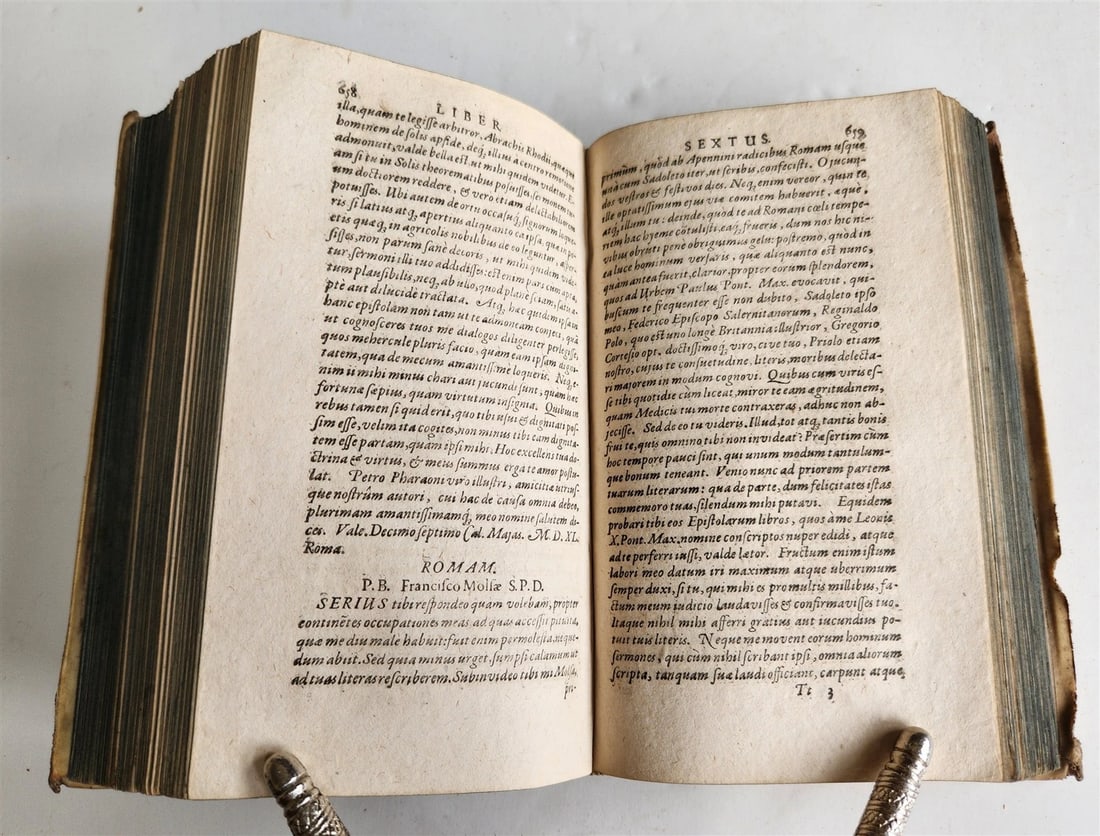 658
LIBER
illa, quam te legisse arbitror, Abrachis Rhodii, quæque
hominem de solis apside, deq́; illius a centro remotione
admonuit, valde bella est, ut mihi quidem videtur. E-
am si tu in Solis theorematibus posuisses, sermonem tu-
um doctiorem reddere, & vero etiam delectabiliorem
potuisses. Ubi autem de ortu occasuq́; signorum loque-
ris si latius atq́; apertius aliquanto ea ipsa, quæ in po-
etis quæq́; in agricolis nobilibus de eo leguntur, asser-
sisses, non parum sanè decoris, ut mihi quidem vide-
tur, sermoni illi tuo addidisses: est enim pars cum apta,
tum plausibilis, neq́; ab ullo, quod planè sciam, satu a-
ptè aut dilucidè tractata. Atq́; hac quidem ipsam
hanc epistolam non tam ut te admoneam conjeci, quà
ut cognosceres tuos me dialogos diligenter perlegisse,
quos mehercule pluris facio, quam eam ipsam digni-
tatem, qua de mecum amantissime loqueris. Neq́; e-
nim ii mihi minus chari aut jucundi sunt, quam hæc
fortunæ sæpius, quam virtutum insignia. Quibus in
rebus tamen si quid erit, quo tibi usui & dignitati pos-
sim esse, velim ita cogites, non minus tibi eam dignita-
tem esse partam, quam ipsi mihi. Hoc excellens tua do-
ctrina & virtus, & meus summus erga te amor postu-
lat. Petro Pharaoni viro illustri, amicitiæ utrius-
que nostrûm autori, cui hac de causa omnia debet,
plurimam amantissimamq́; meo nomine salutem di-
ces. Vale. Decimo septimo Cal. Majas. M. D. XL.
Roma.
ROMAM.
P. B. Francisco Molsæ S. P. D.
SERIUS tibi respondeo quam volebam, propter
continẽtes occupationes meas: ad quas accessit pituita,
quæ me diu male habuit: fuit enim permolesta, nequе-
dum abiit. Sed quia minus urget, sumpsi calamum ut
ad tuas literas rescriberem. Subinvideo tibi mi Molsa,
pri-
SEXTUS.
659
primùm, quòd ab Apennini radicibus Romam usque
unà cum Sadoleto iter, ut scribis, confecisti. O jucun-
dos vestros & festivos dies. Neq́; enim vereor, quin te
ille optatissimum ejus viæ comitem habuerit, æque,
atq́; illum tu: deinde, quod te ad Romani cœli tempe-
riem hac hyeme cõtulisti, eaq́; frueris, dum nos hic ni-
vibus obruti penè obriguimus gelu: postremo, quòd in
ea luce hominum versaris, quæ aliquanto est nunc,
quam antea fuerit, clarior, propter eorum splendorem,
quos ad Urbem Paulus Pont. Max. evocavit, qui-
buscum te frequenter esse non dubito, Sadoleto ipso
meo, Federico Episcopo Salernitanorum, Reginaldo
Polo, quo est uno longè Britannia illustrior, Gregorio
Cortesio opt. doctissimoq́; viro, cive tuo, Priolo etiam
nostro, cujus te consuetudine, literis, moribus delecta-
ri majorem in modum cognovi. Quibus cum viris es-
se tibi quotidie cùm liceat, miror te eam ægritudinem,
quam Medicis tui morte contraxeras, adhuc non ab-
jecisse. Sed de eo tu videris. Illud, tot atq́; tantis bonis
frui te, quis omnino tibi non invideat? Præsertim cùm
hoc tempore pauci sint, qui unum modum tantulum-
que bonum teneant. Venio nunc ad priorem partem
tuarum literarum: qua de parte, dum felicitates istas
commemoro tuas, silendum mihi putavi. Equidem
probari tibi eos Epistolarum libros, quos à me Leonis
X. Pont. Max. nomine conscriptos nuper edidi, atque
ad te perferri jussi, valde lætor. Fructum enim istum
labori meo datum iri maximum atque uberrimum
semper duxi, si tu, qui mihi es pro multis millibus, fa-
ctum meum judicio laudavisses & confirmavisses tuo.
Itaque nihil mihi afferri gratius aut jucundius po-
tuit tuis literis. Neque me movent eorum hominum
sermones, qui cùm nihil scribant ipsi, omnia aliorum
scripta, tanquam suæ laudi officiant, carpunt atque
Tt 3